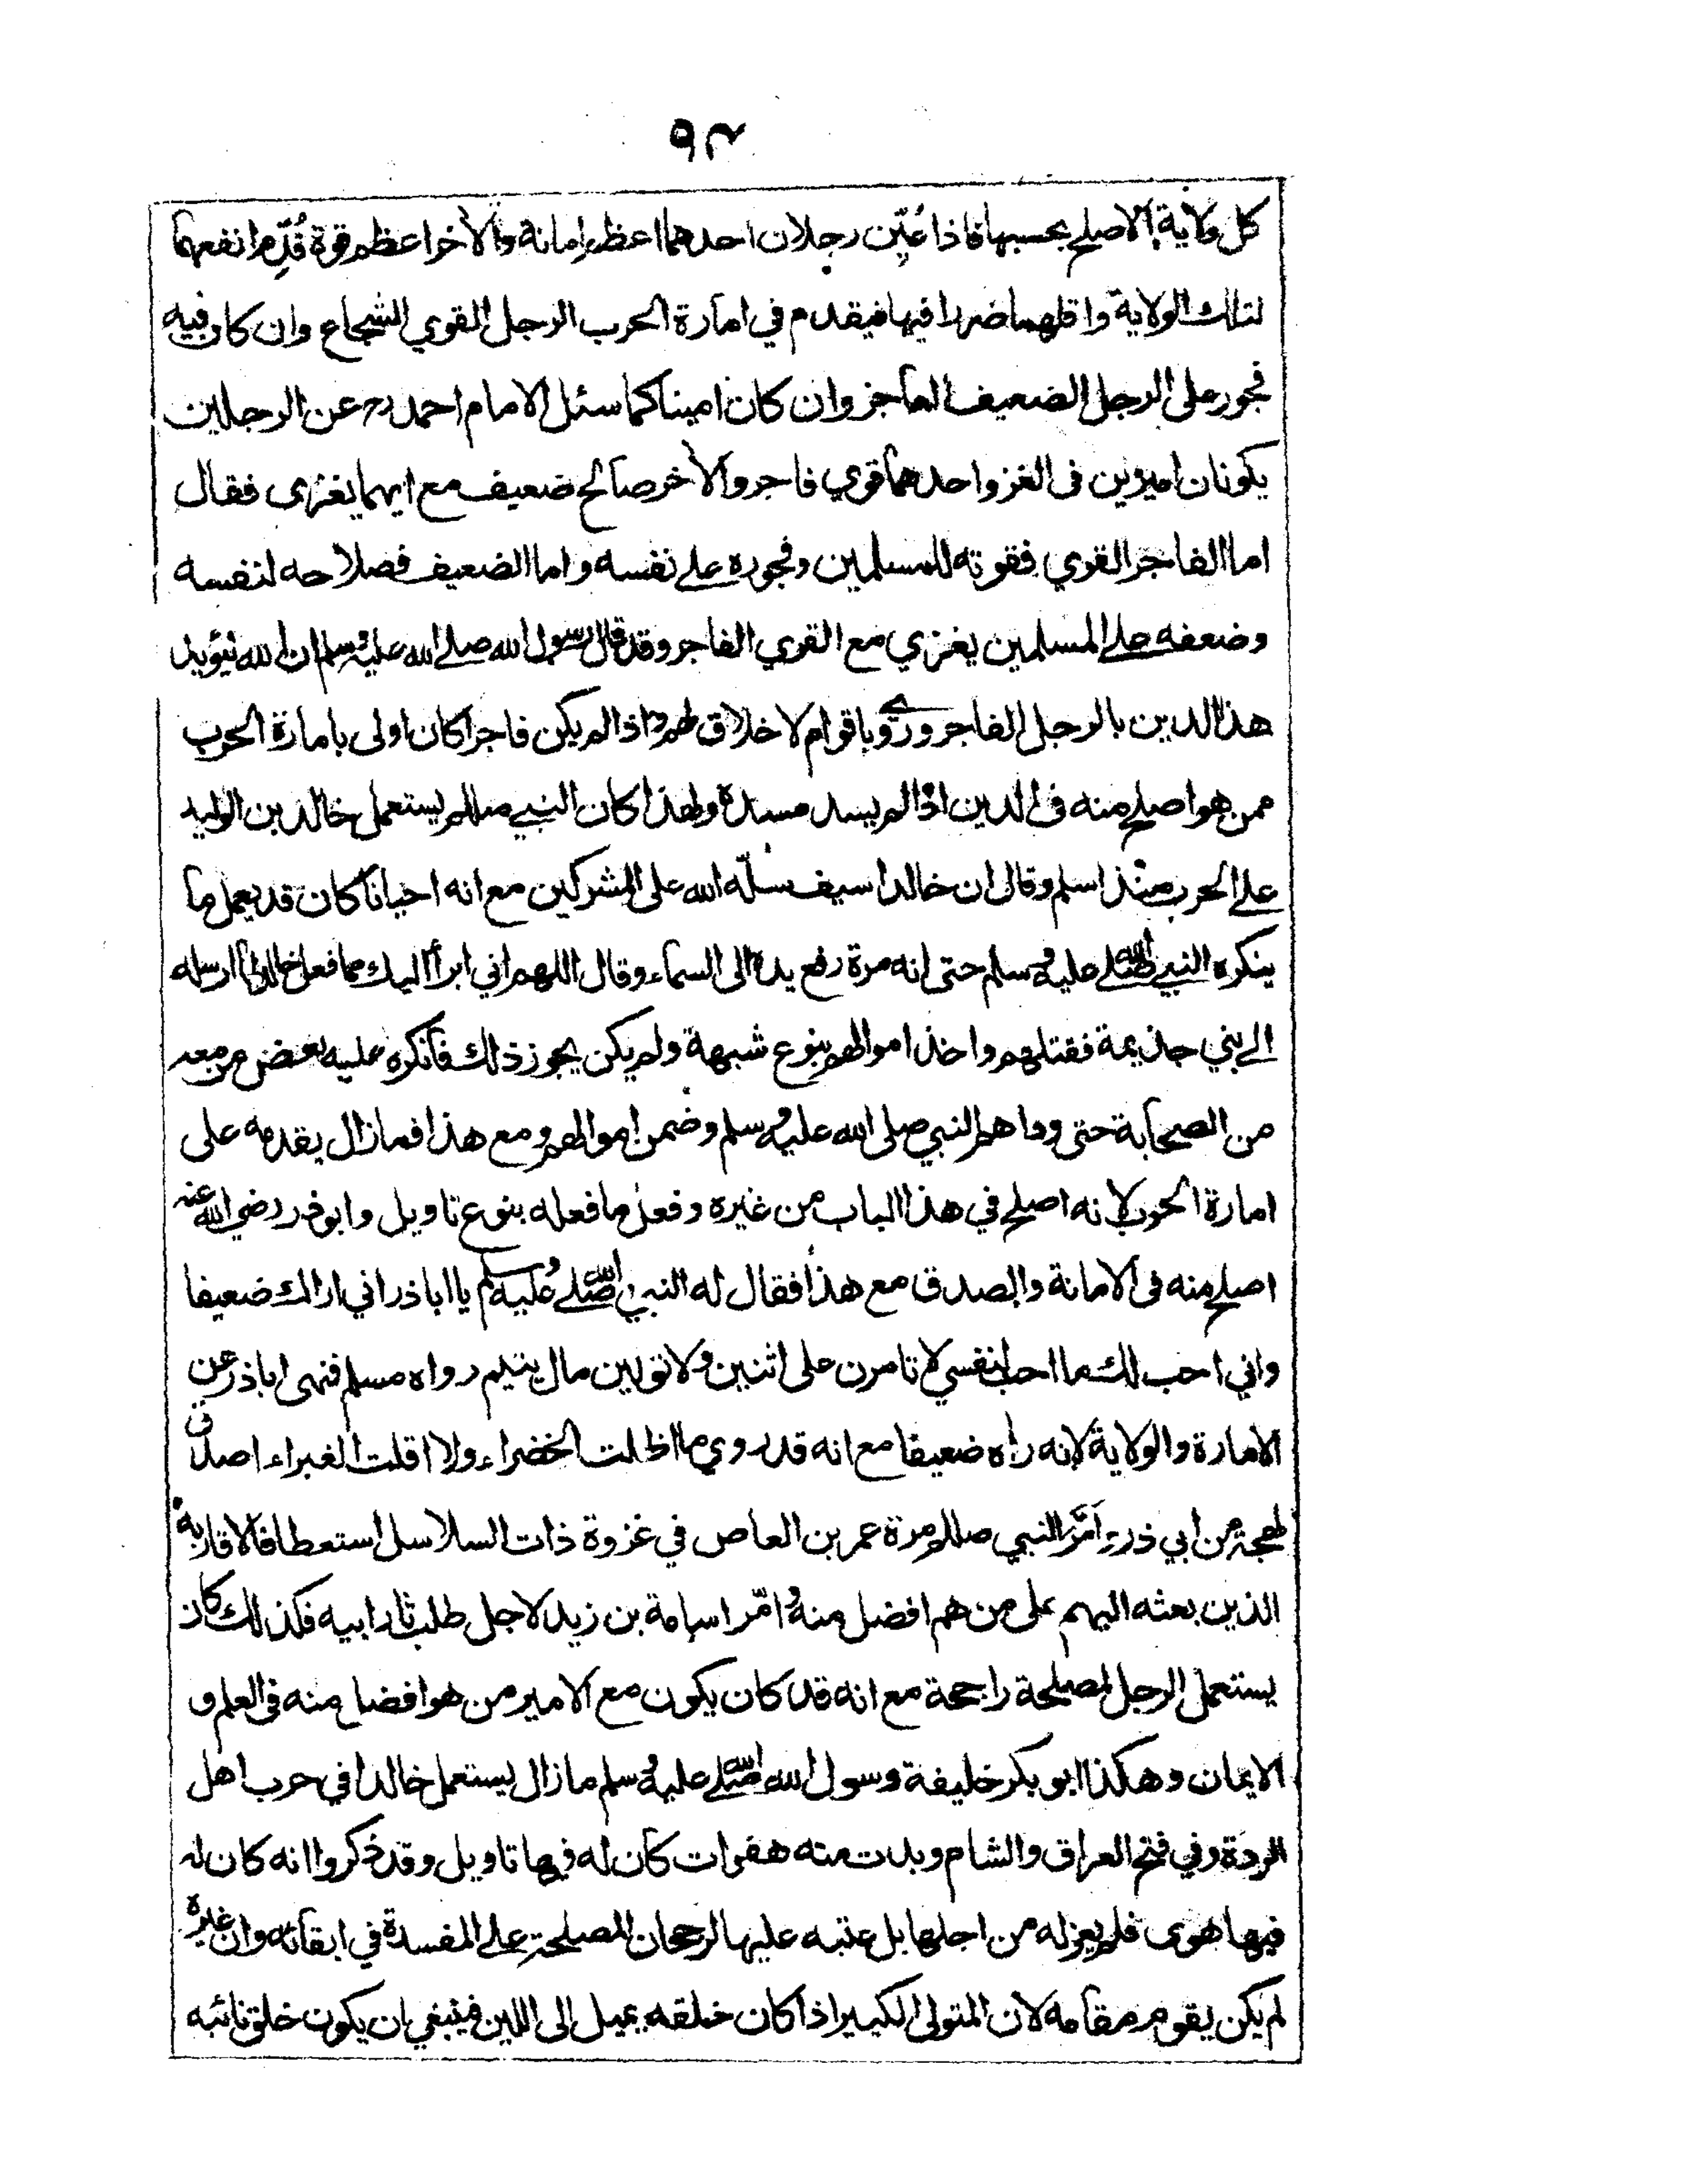 ٩٣
كل ولاية الاصلح بحسبها فاذا عُيّن رجلان احدهما اعظم امانة والآخر اعظم قوة قُدِّم انفعهما
لتلك الولاية واقلهما ضررا فيها فيقدم في امارة الحرب الرجل القوي الشجاع وان كان فيه
فجور على الرجل الضعيف العاجز وان كان امينا كما سئل الامام احمد رح عن الرجلين
يكونان اميرين فى الغزو احدهما قوي فاجر والآخر صالح ضعيف مع ايهما يغزى فقال
اما الفاجر القوي فقوته للمسلمين وفجوره على نفسه واما الضعيف فصلاحه لنفسه
وضعفه على المسلمين يغزي مع القوي الفاجر وقد قال رسول الله صلى الله عليه وسلم ان الله يؤيد
هذا الدين بالرجل الفاجر وروي وباقوام لا خلاق لهم واذا لم يكن فاجرا كان اولى بامارة الحرب
ممن هو اصلح منه فى الدين اذا لم يسد مسده ولهذا كان النبي صللم يستعمل خالد بن الوليد
على الحرب منذ اسلم وقال ان خالدا سيف سلّه الله على المشركين مع انه احيانا كان قد يعمل ما
ينكره النبي صلى الله عليه وسلم حتى انه مرة رفع يده الى السماء وقال اللهم اني ابرأ اليك مما فعل خالد لما ارسله
الى بني جذيمة فقتلهم واخذ اموالهم بنوع شبهة ولم يكن يجوز ذلك فانكره عليه بعض من معه
من الصحابة حتى وداهم النبي صلى الله عليه وسلم وضمن اموالهم ومع هذا فمازال يقدمه على
امارة الحرب لانه اصلح في هذا الباب من غيره وفعل ما فعله بنوع تاويل وابو ذر رضي الله عنه
اصلح منه فى الامانة والصدق مع هذا فقال له النبي صلى الله عليه وسلم يا ابا ذر اني اراك ضعيفا
واني احب لك ما احب لنفسي لا تامرن على اثنين ولا تولين مال يتيم رواه مسلم فنهى ابا ذر عن
الامارة والولاية لانه راه ضعيفا مع انه قد روي ما اظلت الخضراء ولا اقلت الغبراء اصدق
لهجة من ابي ذر وامّر النبي صللم مرة عمر بن العاص في غزوة ذات السلاسل استعطافا لاقاربه
الذين بعثه اليهم على من هم افضل منه وامّر اسامة بن زيد لاجل طلب ثار ابيه فكذلك كان
يستعمل الرجل لمصلحة راجحة مع انه قد كان يكون مع الامير من هو افضل منه فى العلم و
الايمان وهكذا ابو بكر خليفة رسول الله صلى الله عليه وسلم مازال يستعمل خالدا في حرب اهل
الردة وفي فتح العراق والشام وبدت منه هفوات كان له فيها تاويل وقد ذكروا انه كان له
فيها هوى فلم يعزله من اجلها بل عتبه عليها لرجحان المصلحة على المفسدة في ابقائه وان غيره
لم يكن يقوم مقامه لان المتولى الكبير اذا كان خلقه يميل الى اللين فينبغي ان يكون خلق نائبه